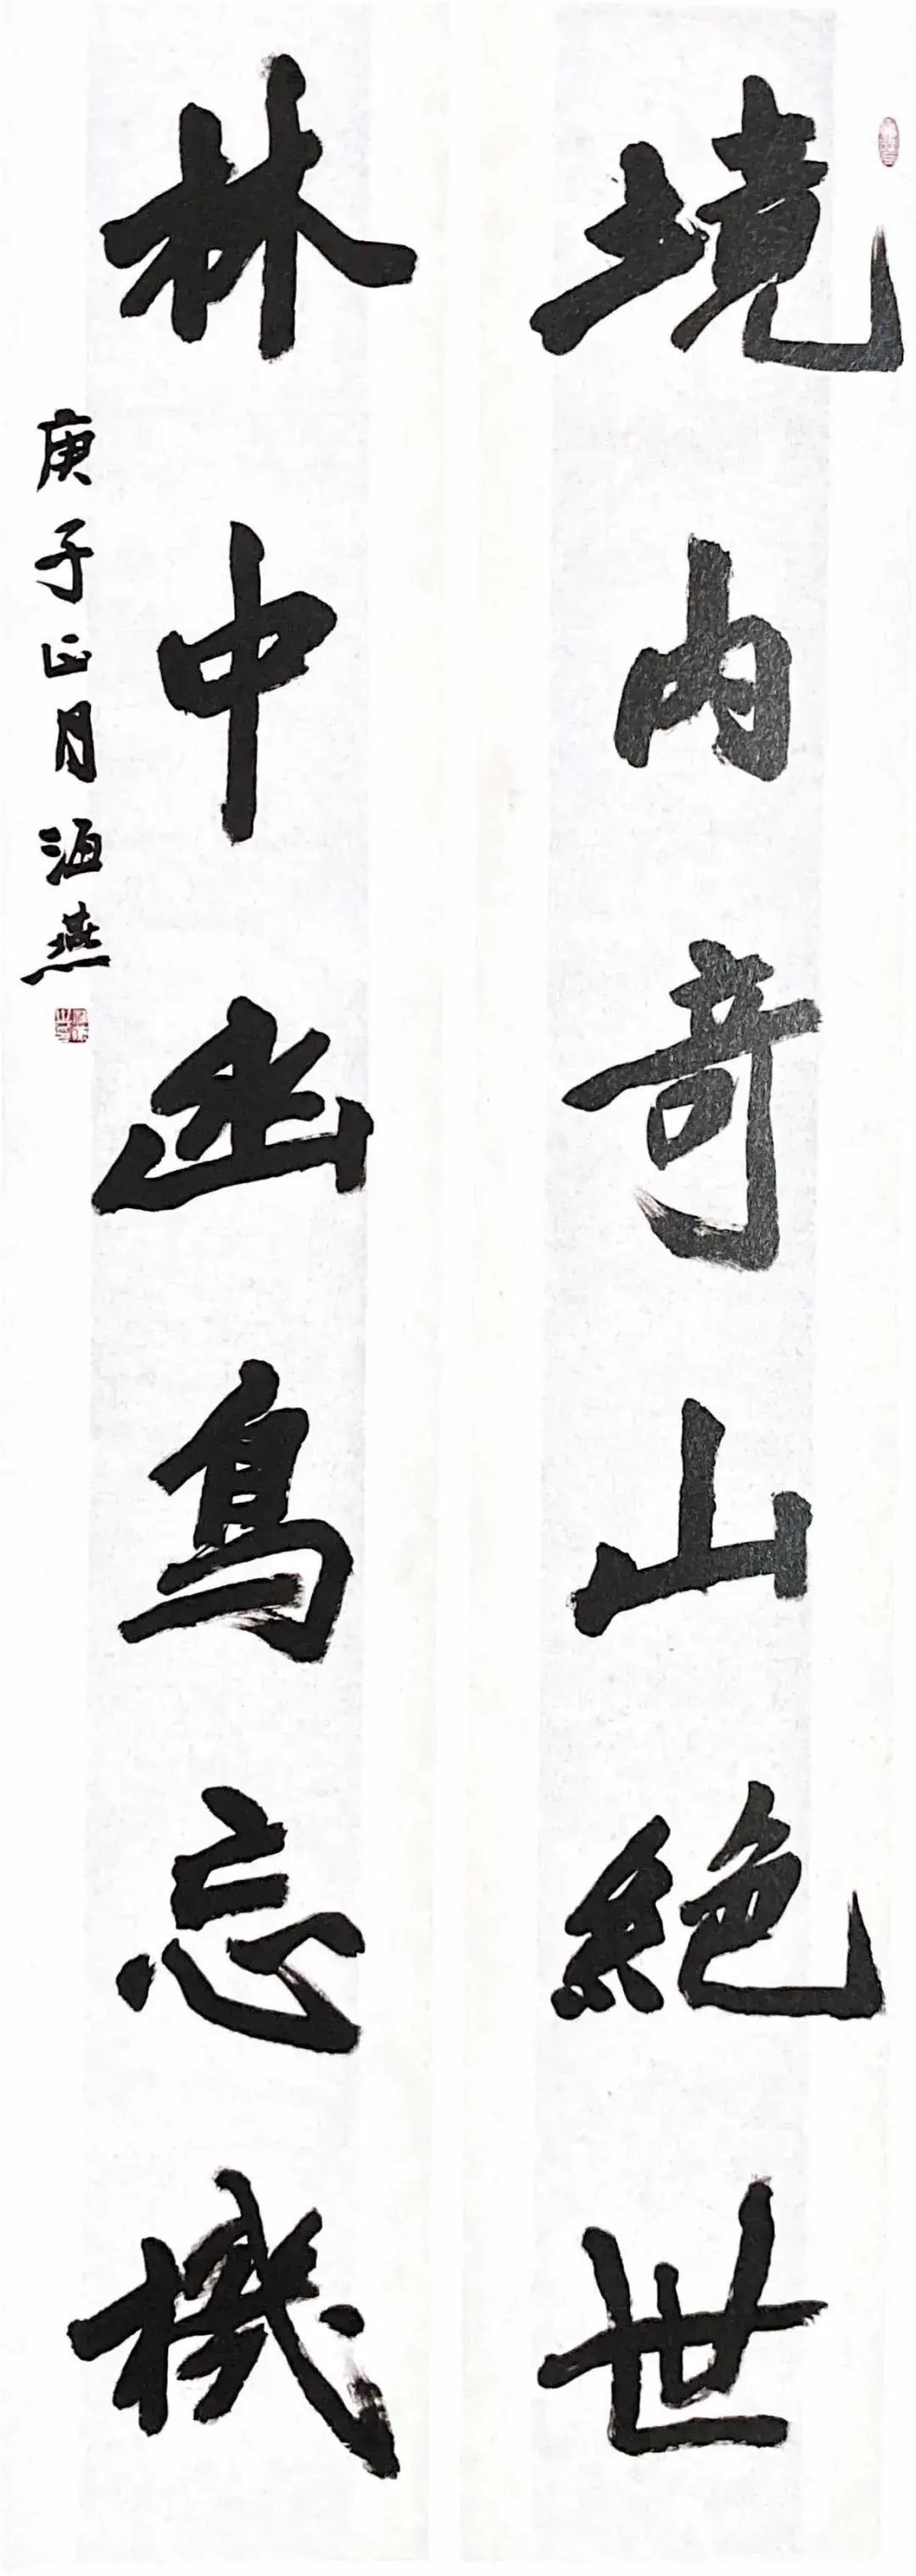 境内奇山絕世
林中幽鳥忘機
庚子正月海燕